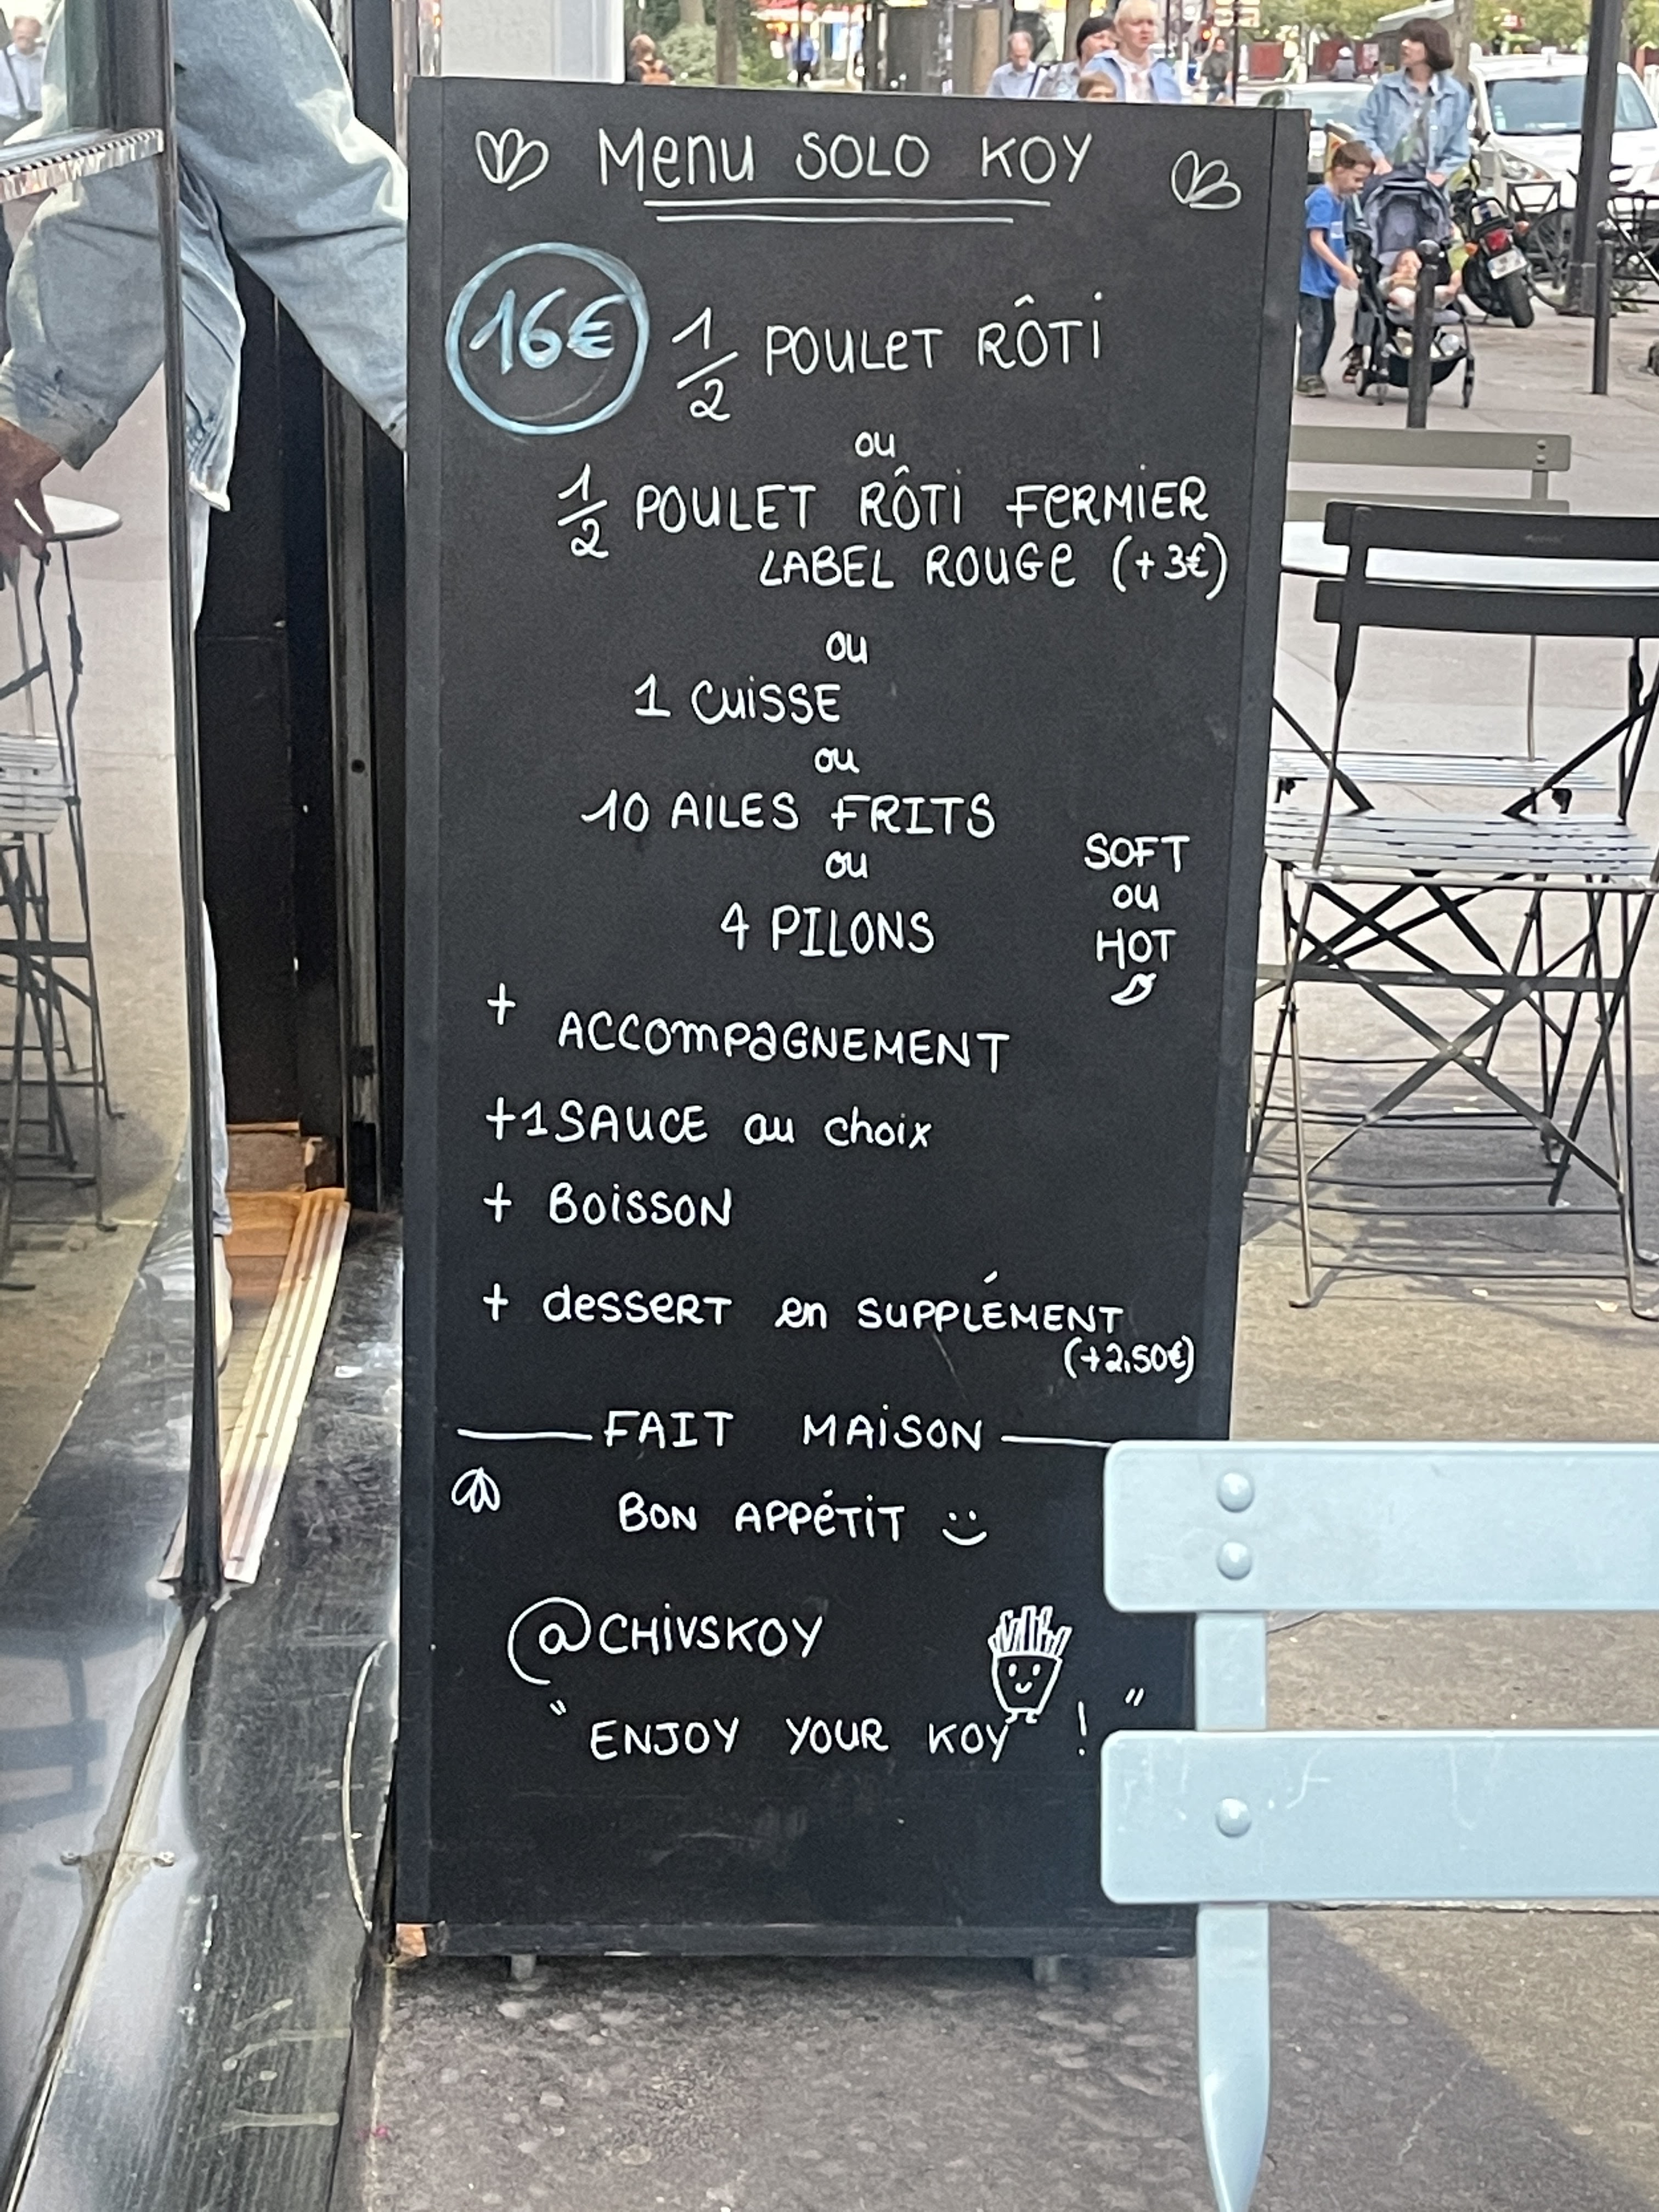 Menu SOLO KOY
16€ 1/2 POULET RÔTI
ou
1/2 POULET RÔTI FERMIER
LABEL ROUGE (+3€)
ou
1 CUISSE
ou
10 AILES FRITS
ou
4 PILONS
SOFT
ou
HOT
+ ACCOMPAGNEMENT
+1 SAUCE au choix
+ BOISSON
+ dESSERT en SUPPLÉMENT
(+2,50€)
FAIT MAISON
BON APPÉTIT :)
@CHIVSKOY
"ENJOY YOUR KOY !"